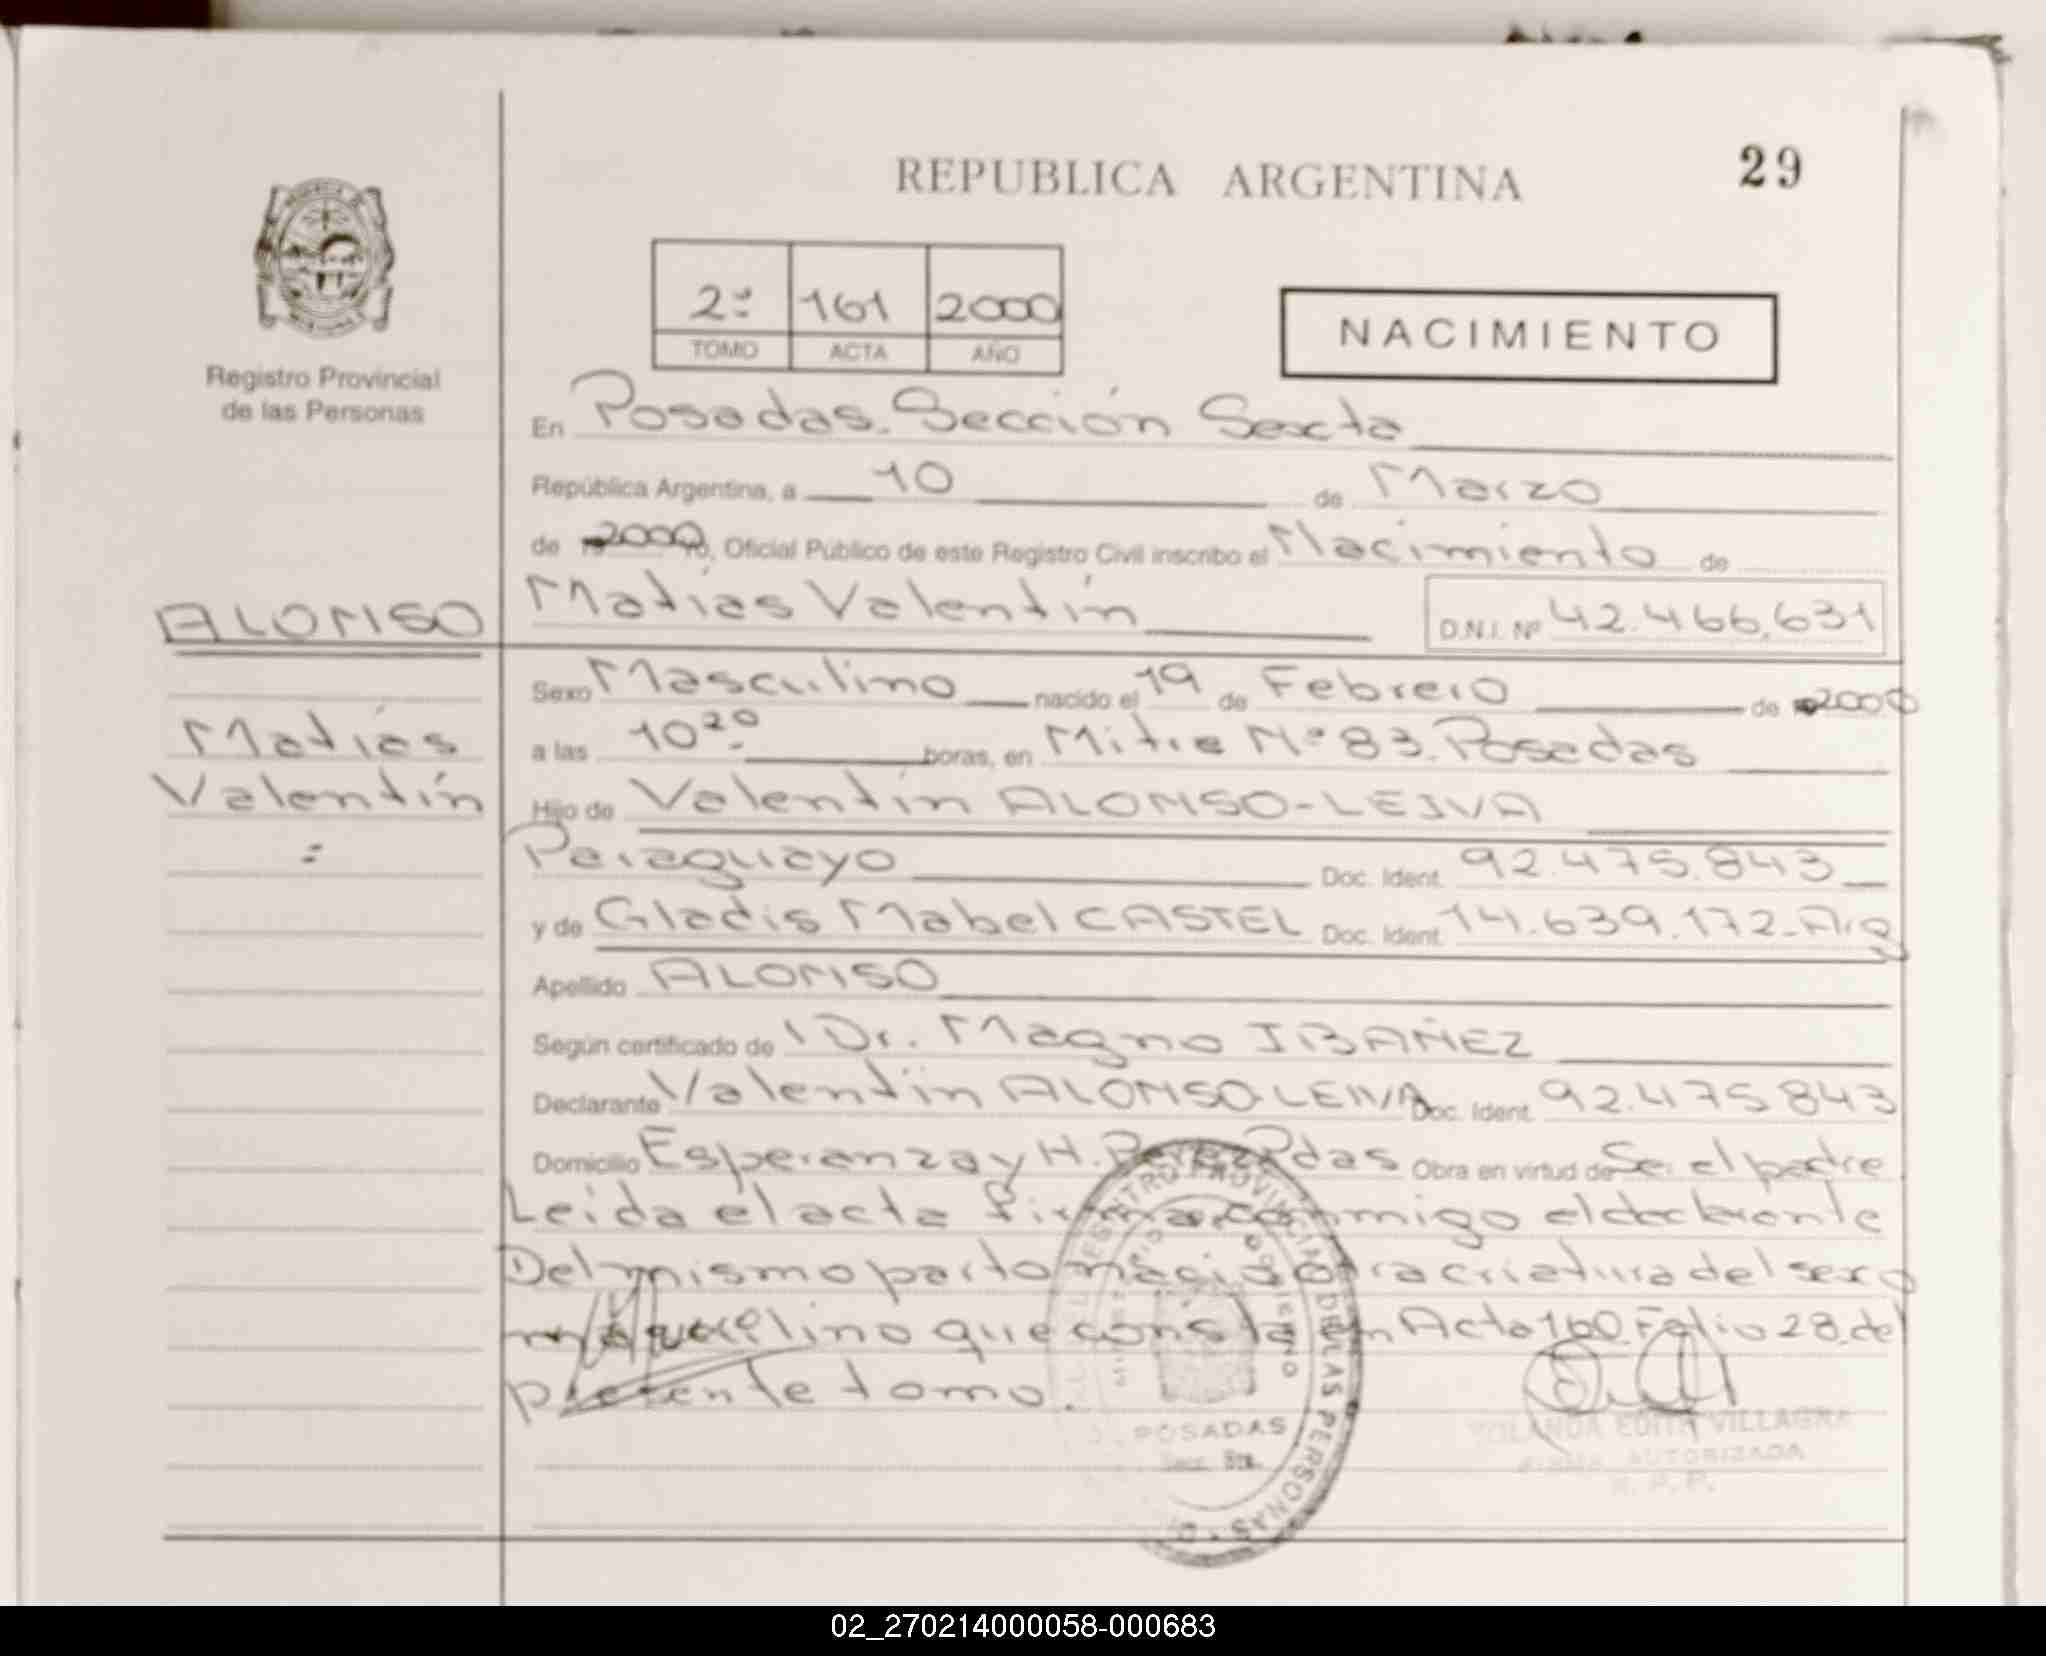 29
REPUBLICA ARGENTINA
2º 161 2000
TOMO ACTA AÑO
NACIMIENTO
Registro Provincial
de las Personas
En Posadas. Sección Sexta
República Argentina, a 10 de Marzo
de 2000, Oficial Público de este Registro Civil inscribo el Nacimiento de
ALONSO Matías Valentín D.N.I. Nº 42.466.631
Sexo Masculino nacido el 19 de Febrero de 2000
Matías a las 10 20 horas, en Mitre Nº 83. Posadas
Valentín Hijo de Valentín ALONSO-LEIVA
Paraguayo Doc. Ident. 92.475.843
y de Gladis Mabel CASTEL Doc. Ident. 14.639.172-Arg
Apellido ALONSO
Según certificado de Dr. Magno IBAÑEZ
Declarante Valentín ALONSO-LEIVA Doc. Ident. 92.475843
Domicilio Esperanza y H. Perez Pdas Obra en virtud de Ser el padre
Leida el acta firma conmigo el declarante
Del mismo parto nació otra criatura del sexo
masculino que consta en Acta 160. Folio 28. del
presente tomo.
REGISTRO PROVINCIAL DE LAS PERSONAS
MINISTERIO GOBIERNO
POSADAS
YOLANDA EDITH VILLAGRA
FIRMA AUTORIZADA
R. P. P.
02_270214000058-000683